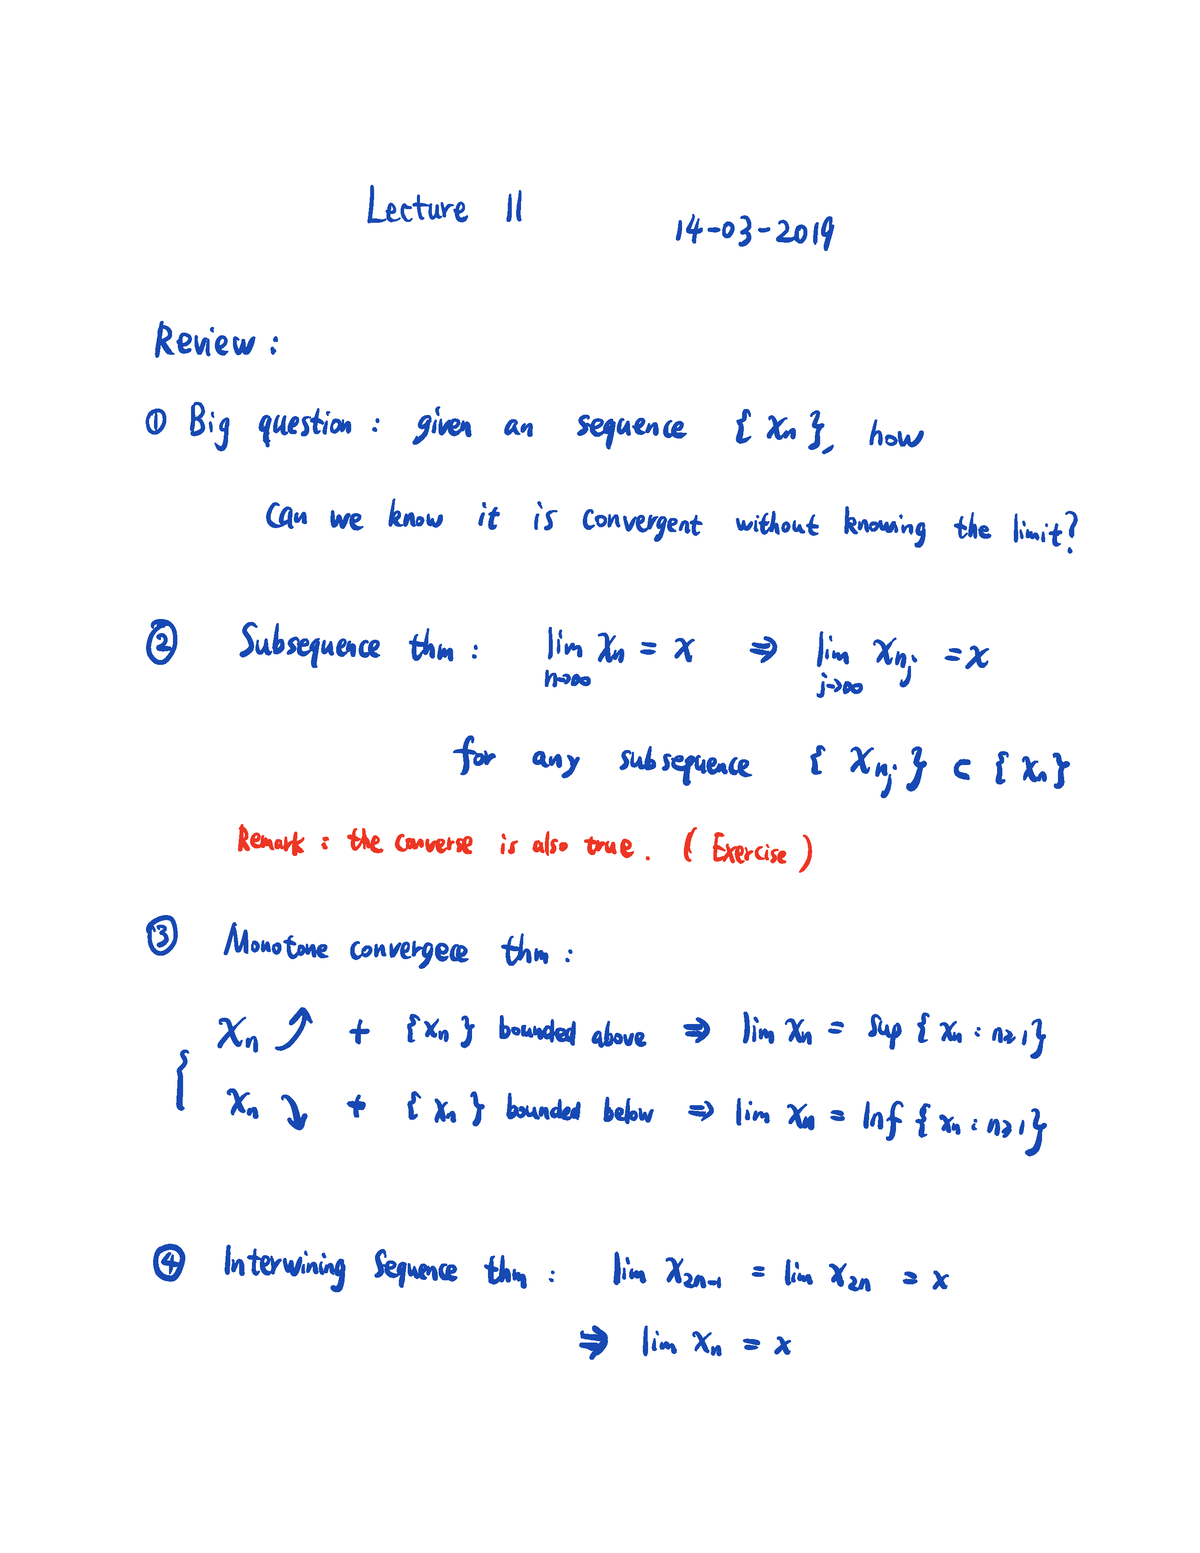 Lecture 11
14-03-2019
Review :
① Big question : given an sequence { xn }, how
can we know it is convergent without knowing the limit?
② Subsequence thm : lim n→∞ xn = x ⇒ lim j→∞ xnj = x
for any subsequence { xnj } ⊂ { xn }
Remark : the converse is also true. ( Exercise )
③ Monotone convergece thm :
{ xn ↗ + {xn} bounded above ⇒ lim xn = sup { xn : n≥1}
xn ↘ + { xn } bounded below ⇒ lim xn = Inf { xn : n≥1}
④ Interwining Sequence thm : lim x2n-1 = lim x2n = x
⇒ lim xn = x